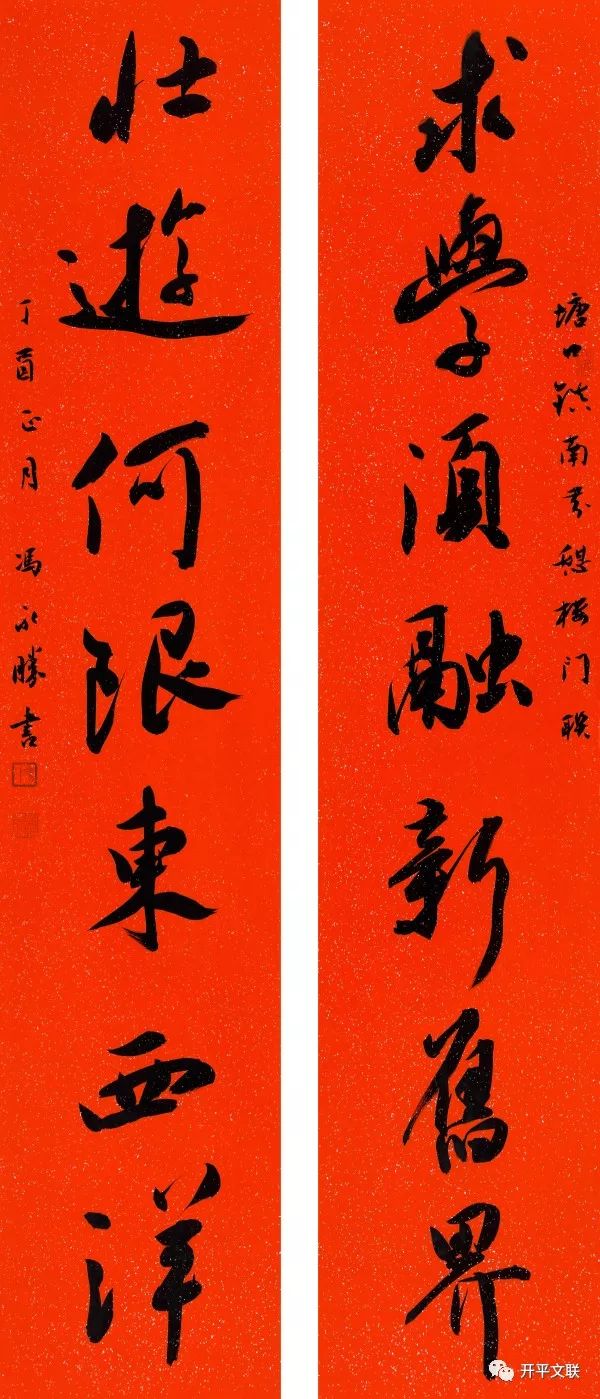 塘口镇南芬憩楼门联
求學須融新舊界
壯遊何限東西洋
丁酉正月 馮永勝書
开平文联